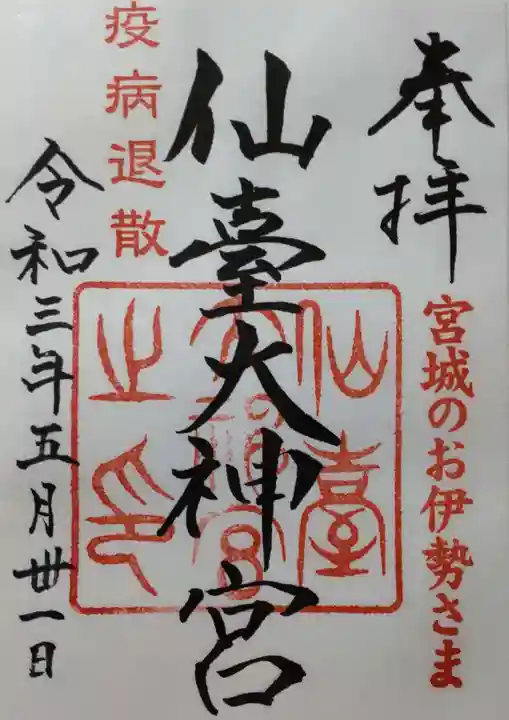 奉拝
宮城のお伊勢さま
仙臺大神宮
仙臺
大神宮
之印
疫病退散
令和三年五月卅一日